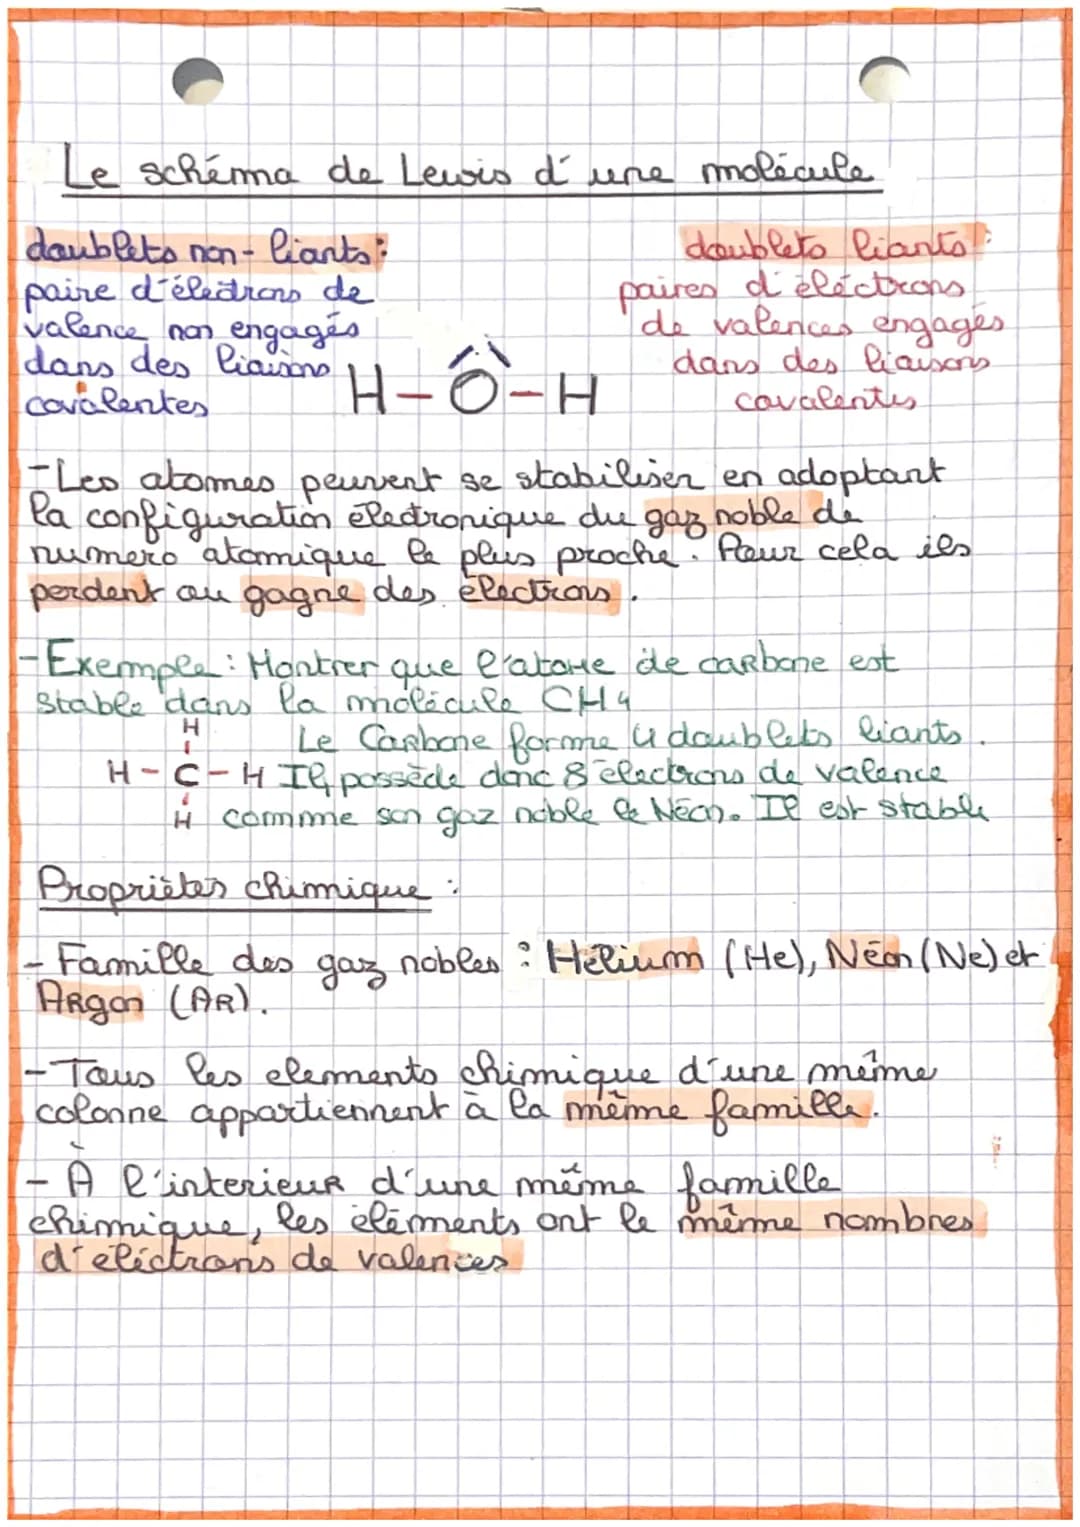 Le schéma de Lewis d'une molécule
doublets non-liants :
paire d'électrons de
valence non engagés
dans des liaisons
covalentes
doublets liants :
paires d'éléctrons
de valences engagés
dans des liaisons
covalentes
H-O-H
-Les atomes peuvent se stabiliser en adoptant
la configuration électronique du gaz noble de
numero atomique le plus proche. Pour cela ils
perdent ou gagne des électrons.
-Exemple : Montrer que l'atome de carbone est
stable dans la molécule CH4
H
H-C-H
H
Le Carbone forme 4 doublets liants.
Il possède donc 8 électrons de valence
comme son gaz noble le Néon. Il est stable
Propriétés chimique :
- Famille des gaz nobles : Hélium (He), Néon (Ne) et
Argon (AR).
- Tous les elements chimique d'une même
colonne appartiennent à la même famille.
- À l'interieur d'une même famille
chimique, les éléments ont le même nombres
d'éléctrons de valences